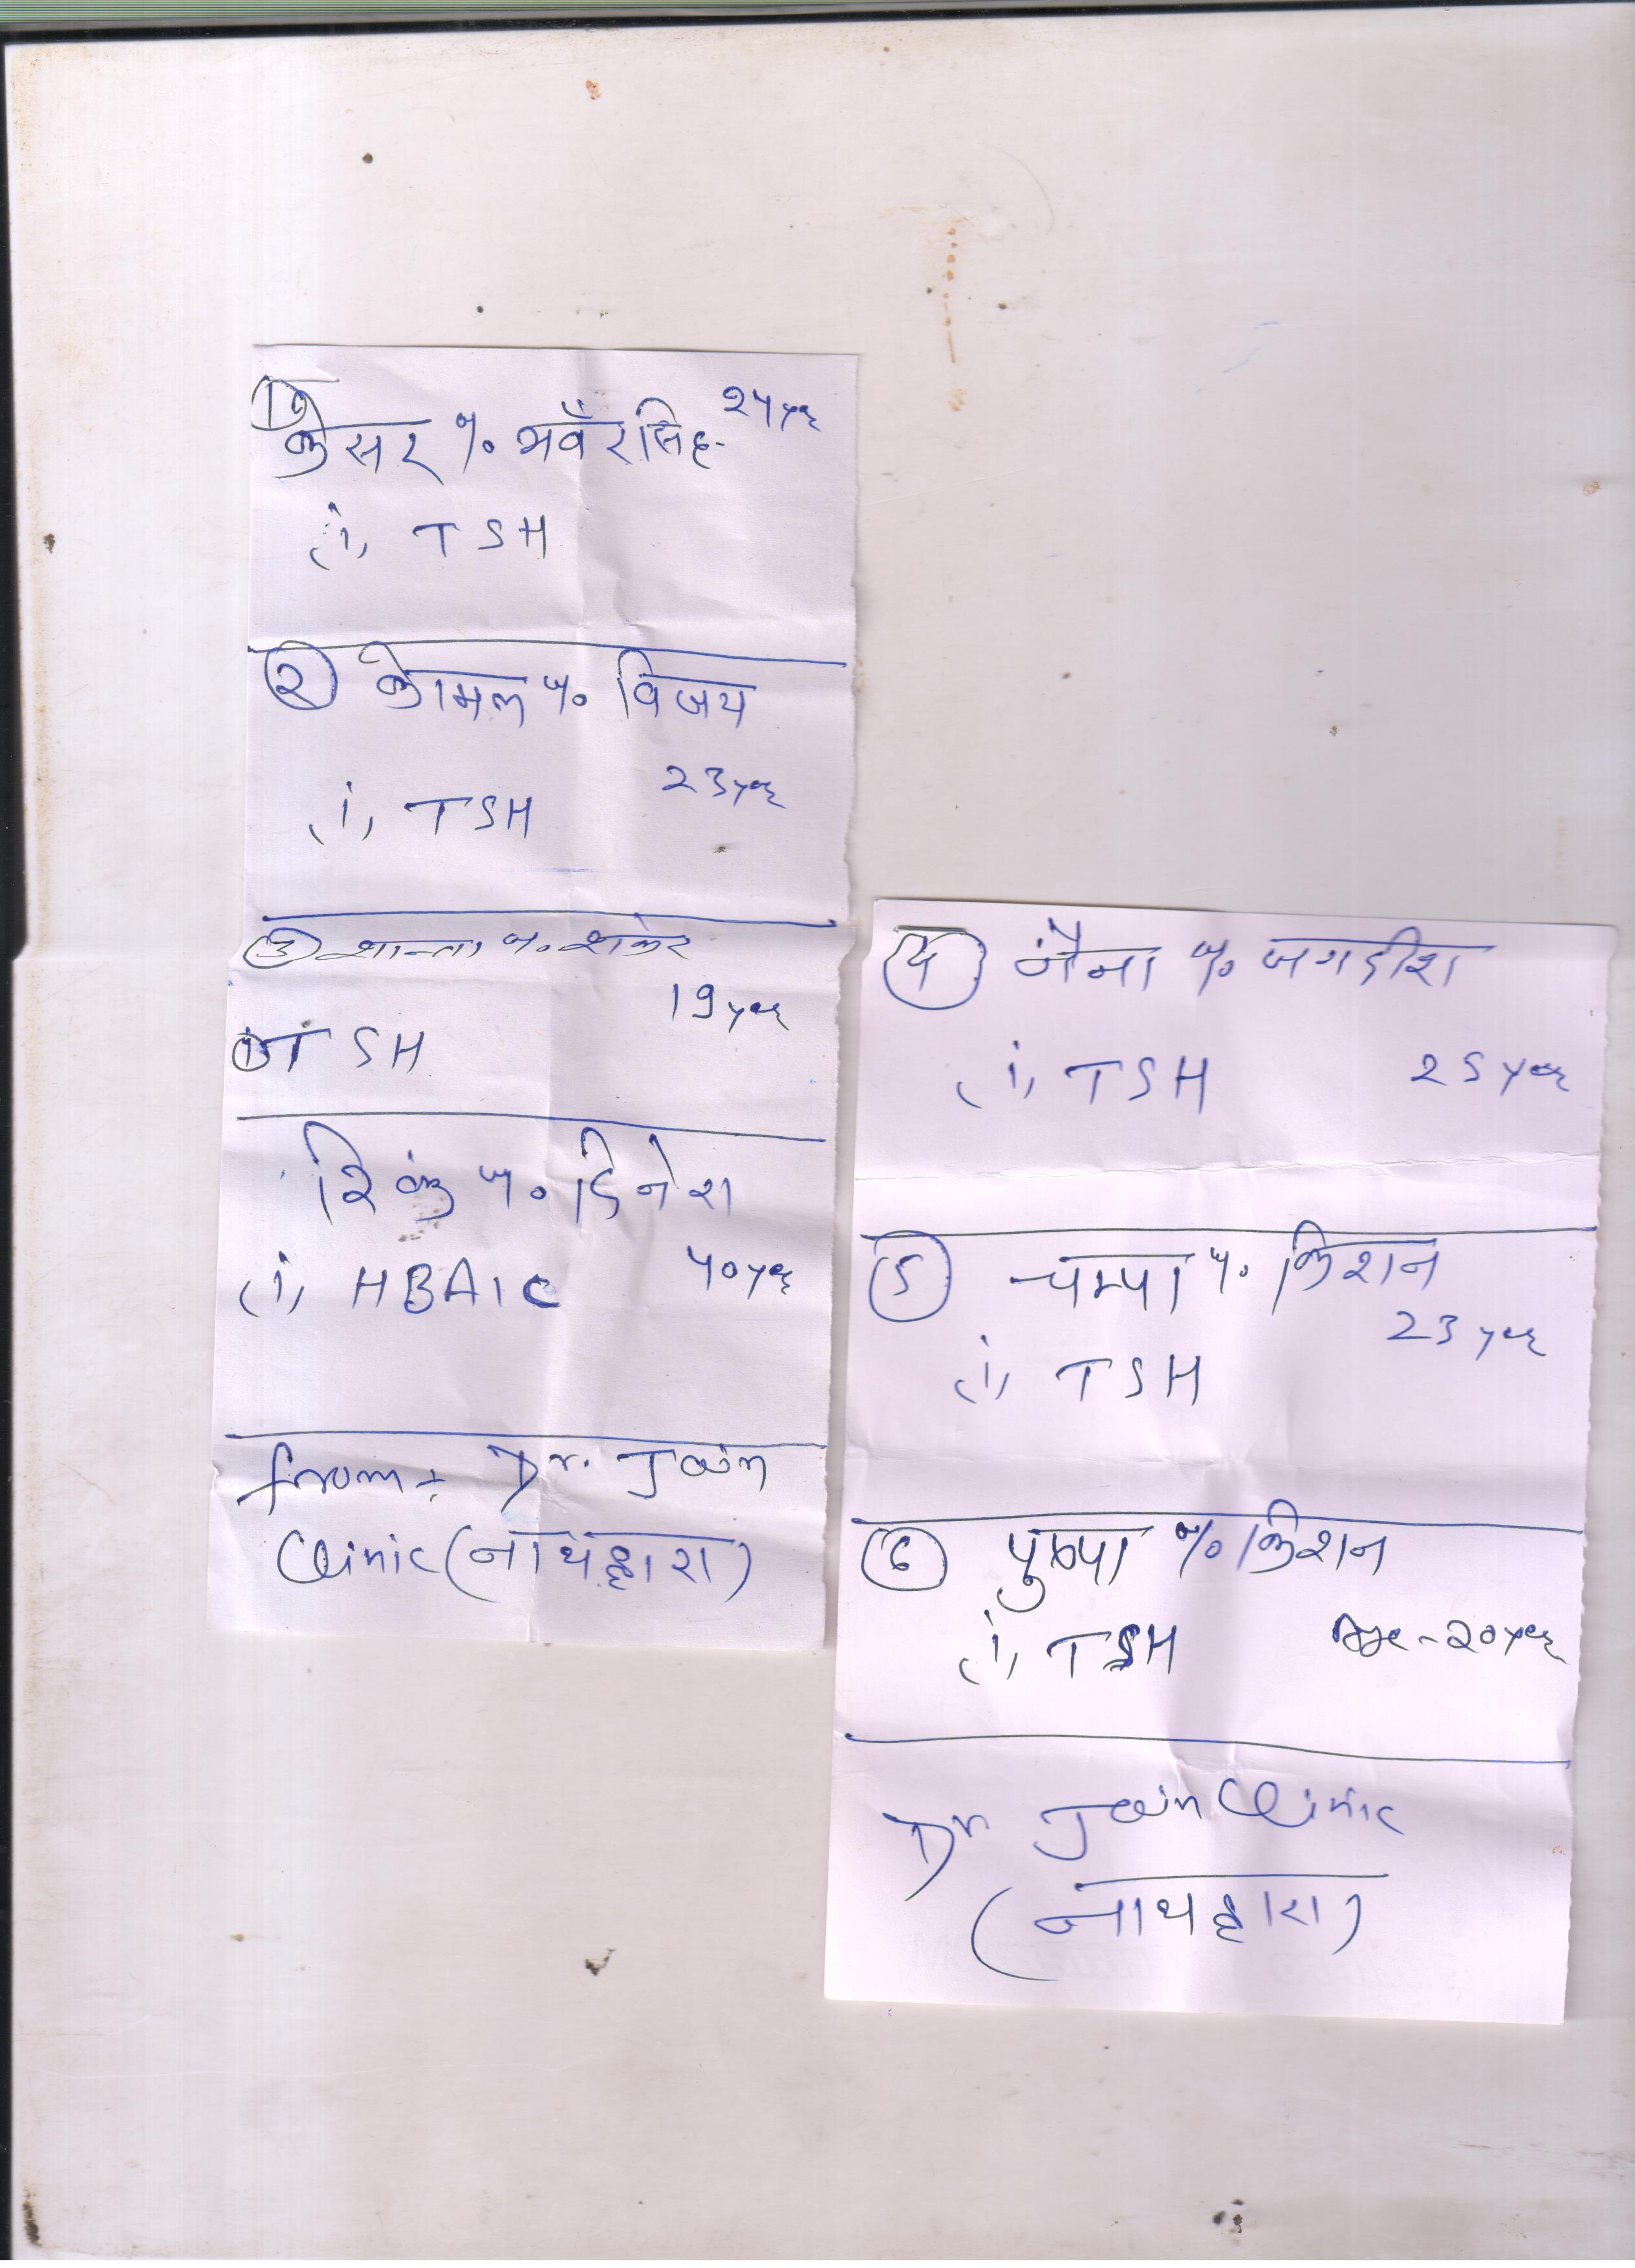 ①
केसर % भवँरसिंह 24 yer
(i) TSH
② कोमल % विजय
23 yer
(i) TSH
③ शान्ता % शंकर
19 yer
① TSH
रिंकु % दिनेश
(i) HBA1C 40 yer
from :- Dr. Jain
Clinic (नाथद्वारा)
④ नैना % जगदीश
(i) TSH 25 yer
⑤ चम्पा % किशन
23 yer
(i) TSH
⑥ पुष्पा % किशन
(i) TSH Age - 20 yer
Dr Jain Clinic
(नाथद्वारा)